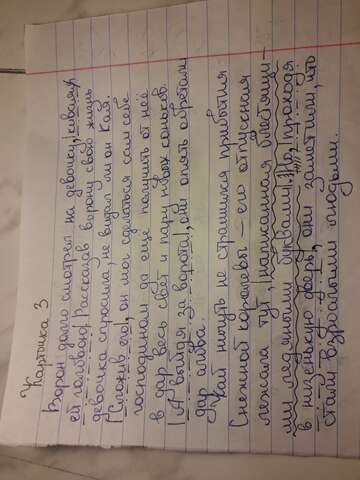 Карточка 3
Ворон долго смотрел на девочку, кивая
ей головой. Рассказав ворону свою жизнь
девочка спросила, не видал ли он Кая.
Сложив его, он мог сделаться сам себе
господином да ещё получить от неё
в дар весь свет и пару новых коньков.
А выйдя за ворота, они опять обрели
дар слова.
Кай ничуть не страшился прибытия
Снежной королевы – его отпускная
лежала тут, написанная блестящи-
ми ледяными буквами. Но, проходя
в низенькую дверь, они заметили, что
стали взрослыми людьми.